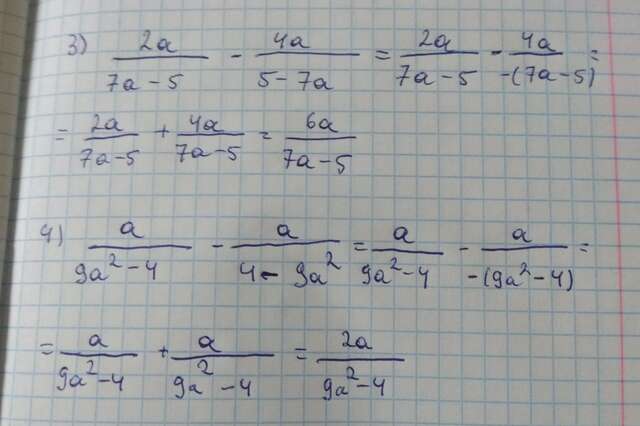 3) 2a/(7a-5) - 4a/(5-7a) = 2a/(7a-5) - 4a/(-(7a-5)) =
= 2a/(7a-5) + 4a/(7a-5) = 6a/(7a-5)
4) a/(9a²-4) - a/(4-9a²) = a/(9a²-4) - a/(-(9a²-4)) =
= a/(9a²-4) + a/(9a²-4) = 2a/(9a²-4)